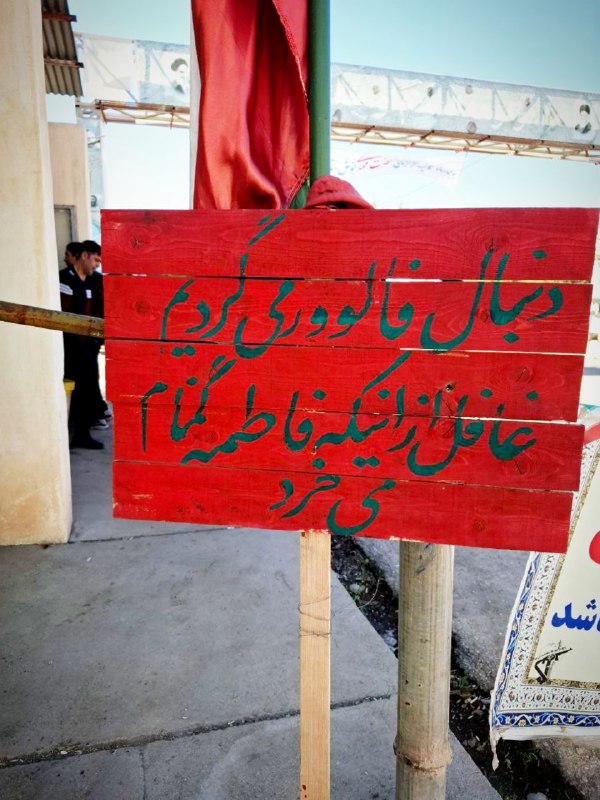 دنبال فالوور می گردیم
غافل از اینکه فاطمه گمنام
می خرد
شد